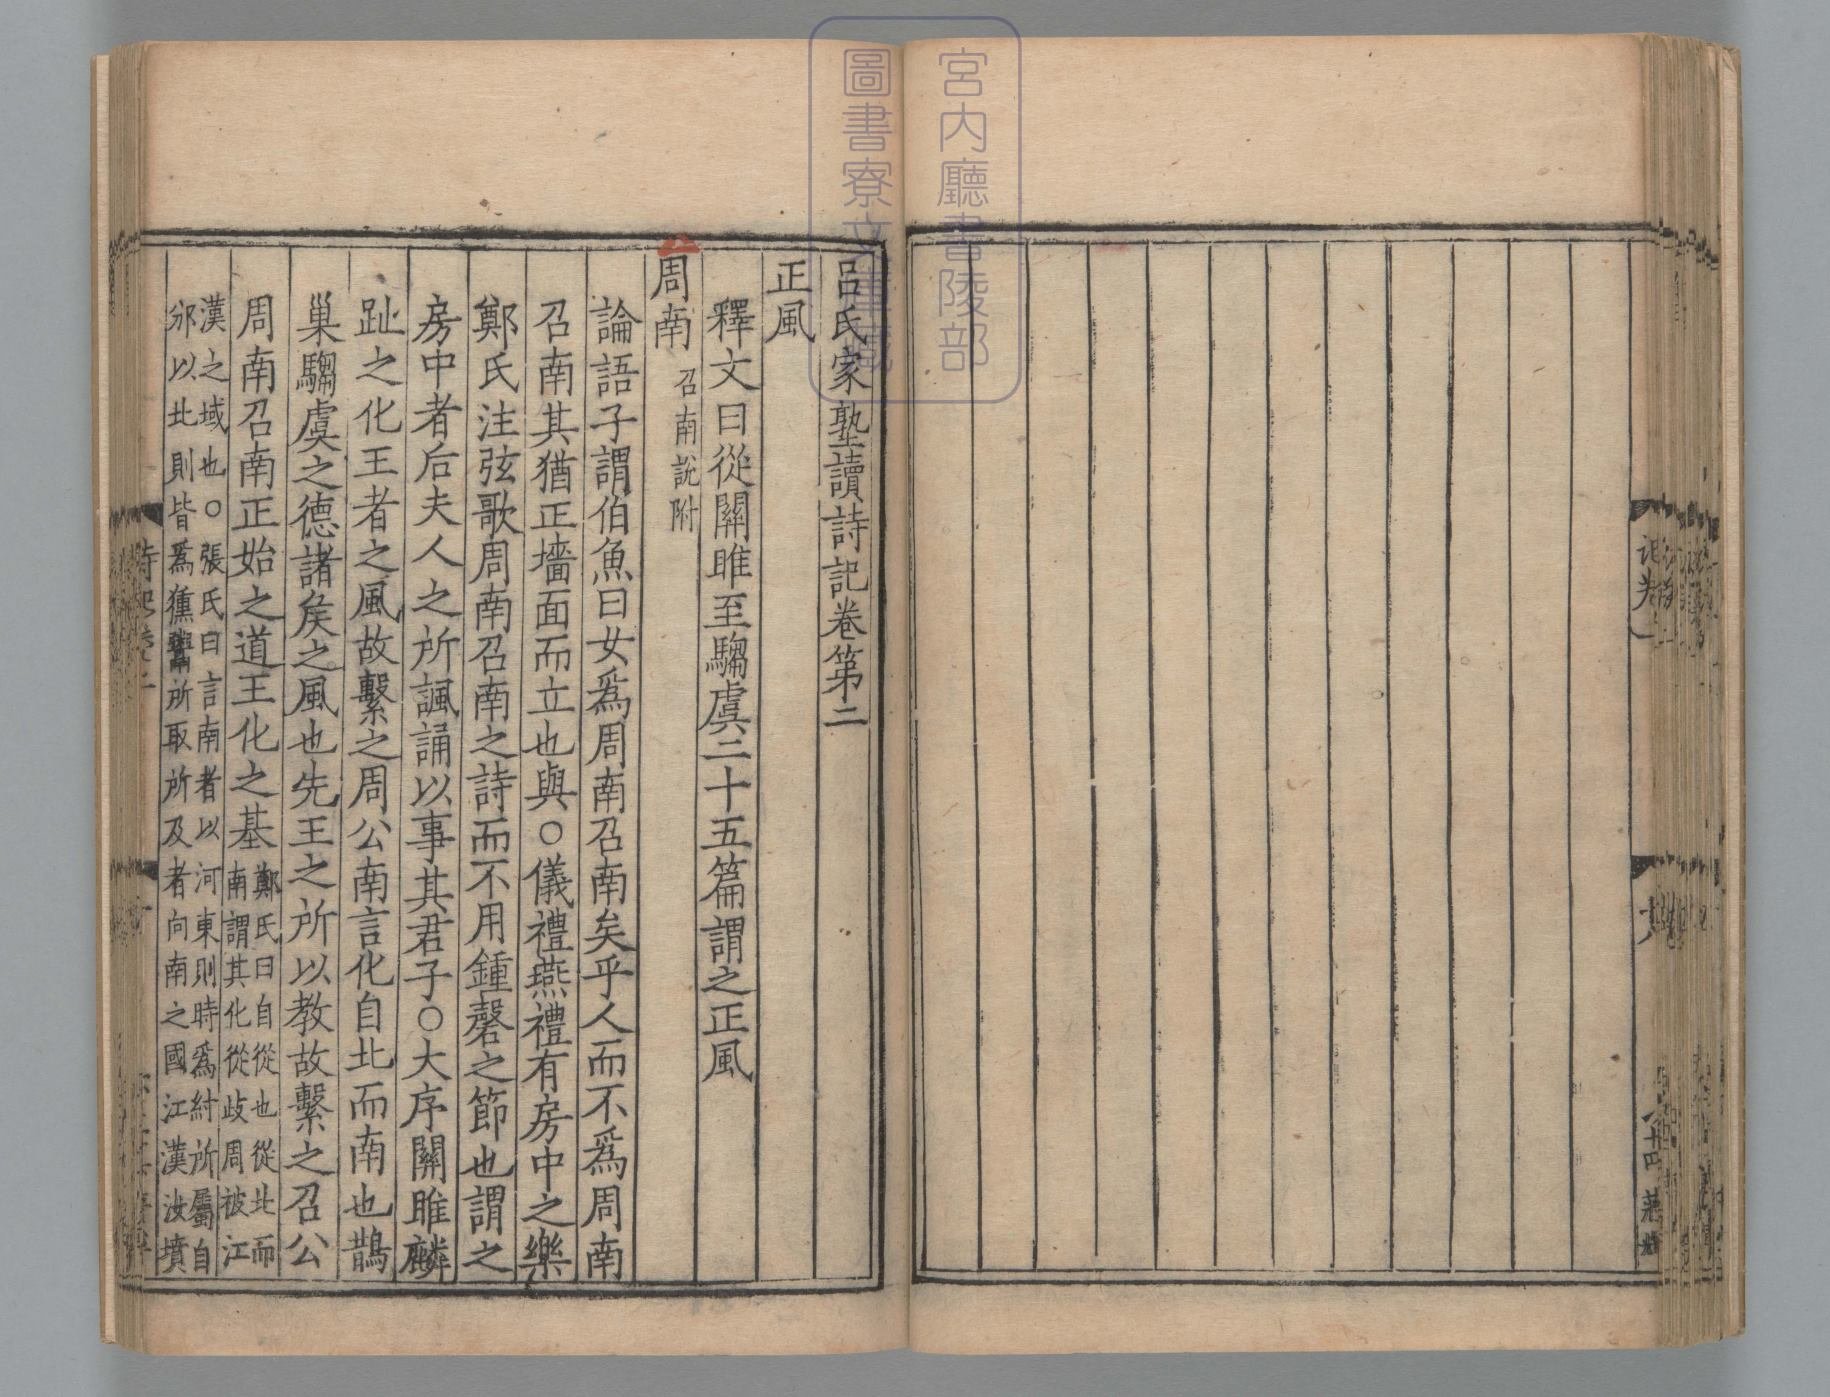 宮内廳書陵部
圖書寮文庫藏
呂氏家塾讀詩記卷第二
正風
釋文曰從關雎至騶虞二十五篇謂之正風
周南 召南說附
論語子謂伯魚曰女爲周南召南矣乎人而不爲周南
召南其猶正墻面而立也與○儀禮燕禮有房中之樂
鄭氏注弦歌周南召南之詩而不用鍾磬之節也謂之
房中者后夫人之所諷誦以事其君子○大序關雎麟
趾之化王者之風故繫之周公南言化自北而南也鵲
巢騶虞之德諸矦之風也先王之所以教故繫之召公
周南召南正始之道王化之基
鄭氏曰自從也從北而
南謂其化從歧周被江
漢之域也○張氏曰言南者以河東則時爲紂所屬自
邠以北則皆爲獯鬻所取所及者向南之國江漢汝墳
詩記卷二